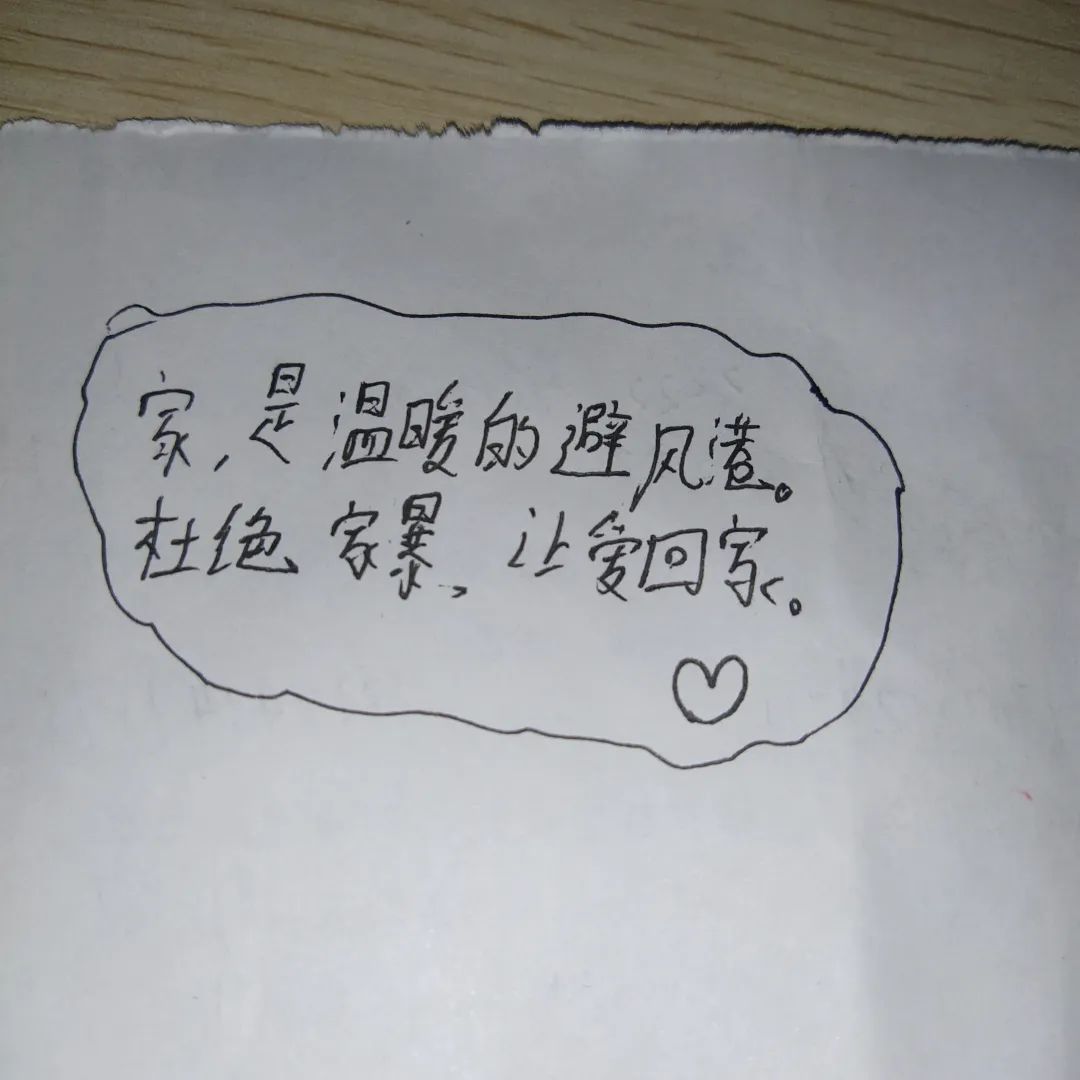 家,是温暖的避风港。
杜绝家暴、让爱回家。